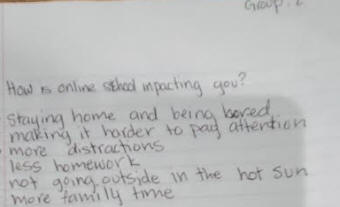 Group: 2
How is online school inpacting you?
Staying home and being bored
making it harder to pay attention
more distractions
less homework
not going outside in the hot sun
more family time